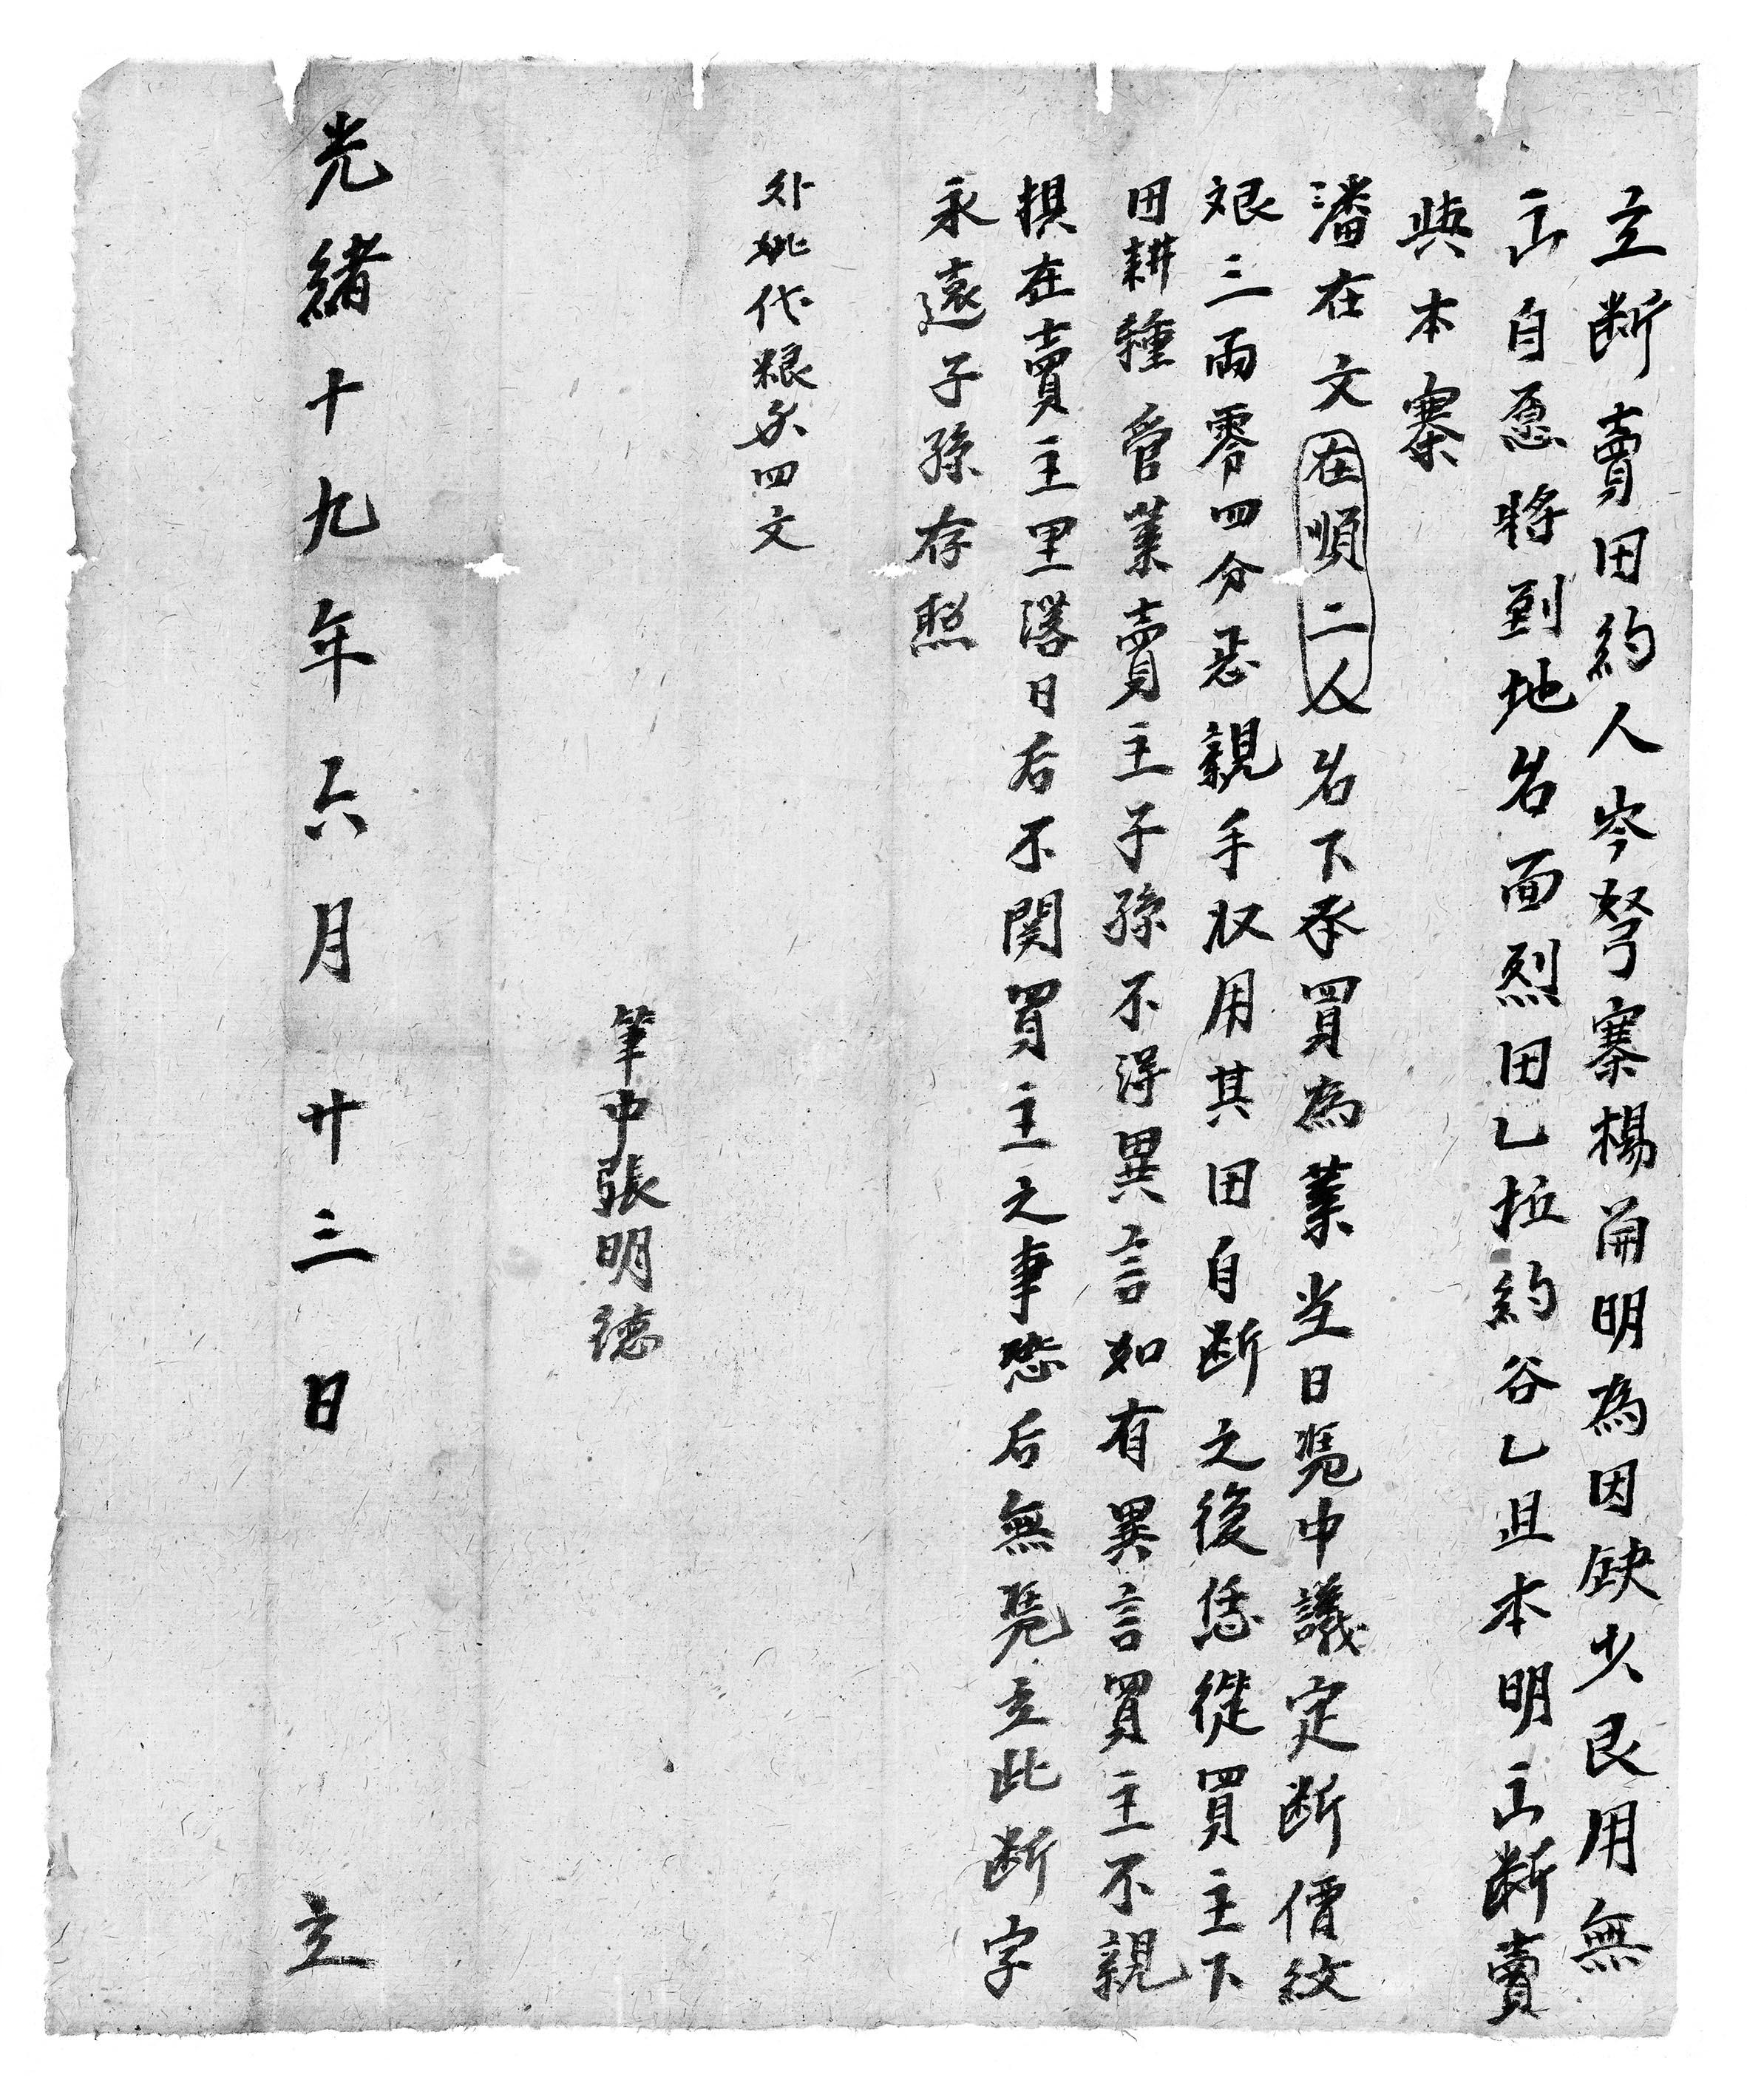 立断賣田約人岑努寨楊甭明為因缺少艮用無
叾自愿將到地名面烈田乚坵約谷乚且本明叾断賣
與本寨
潘在文在順二人名下承買為業当日凴中議定断價紋
艮三両零四分恶親手収用其田自断之後恁從買主下
田耕種管業賣主子孫不得異言如有異言買主不親
損在賣主里落日后不関買主之事恐后無凴立此断字
永遠子孫存照
外挑代粮錢四文
筆中張明德
光緒十九年六月廿三日立